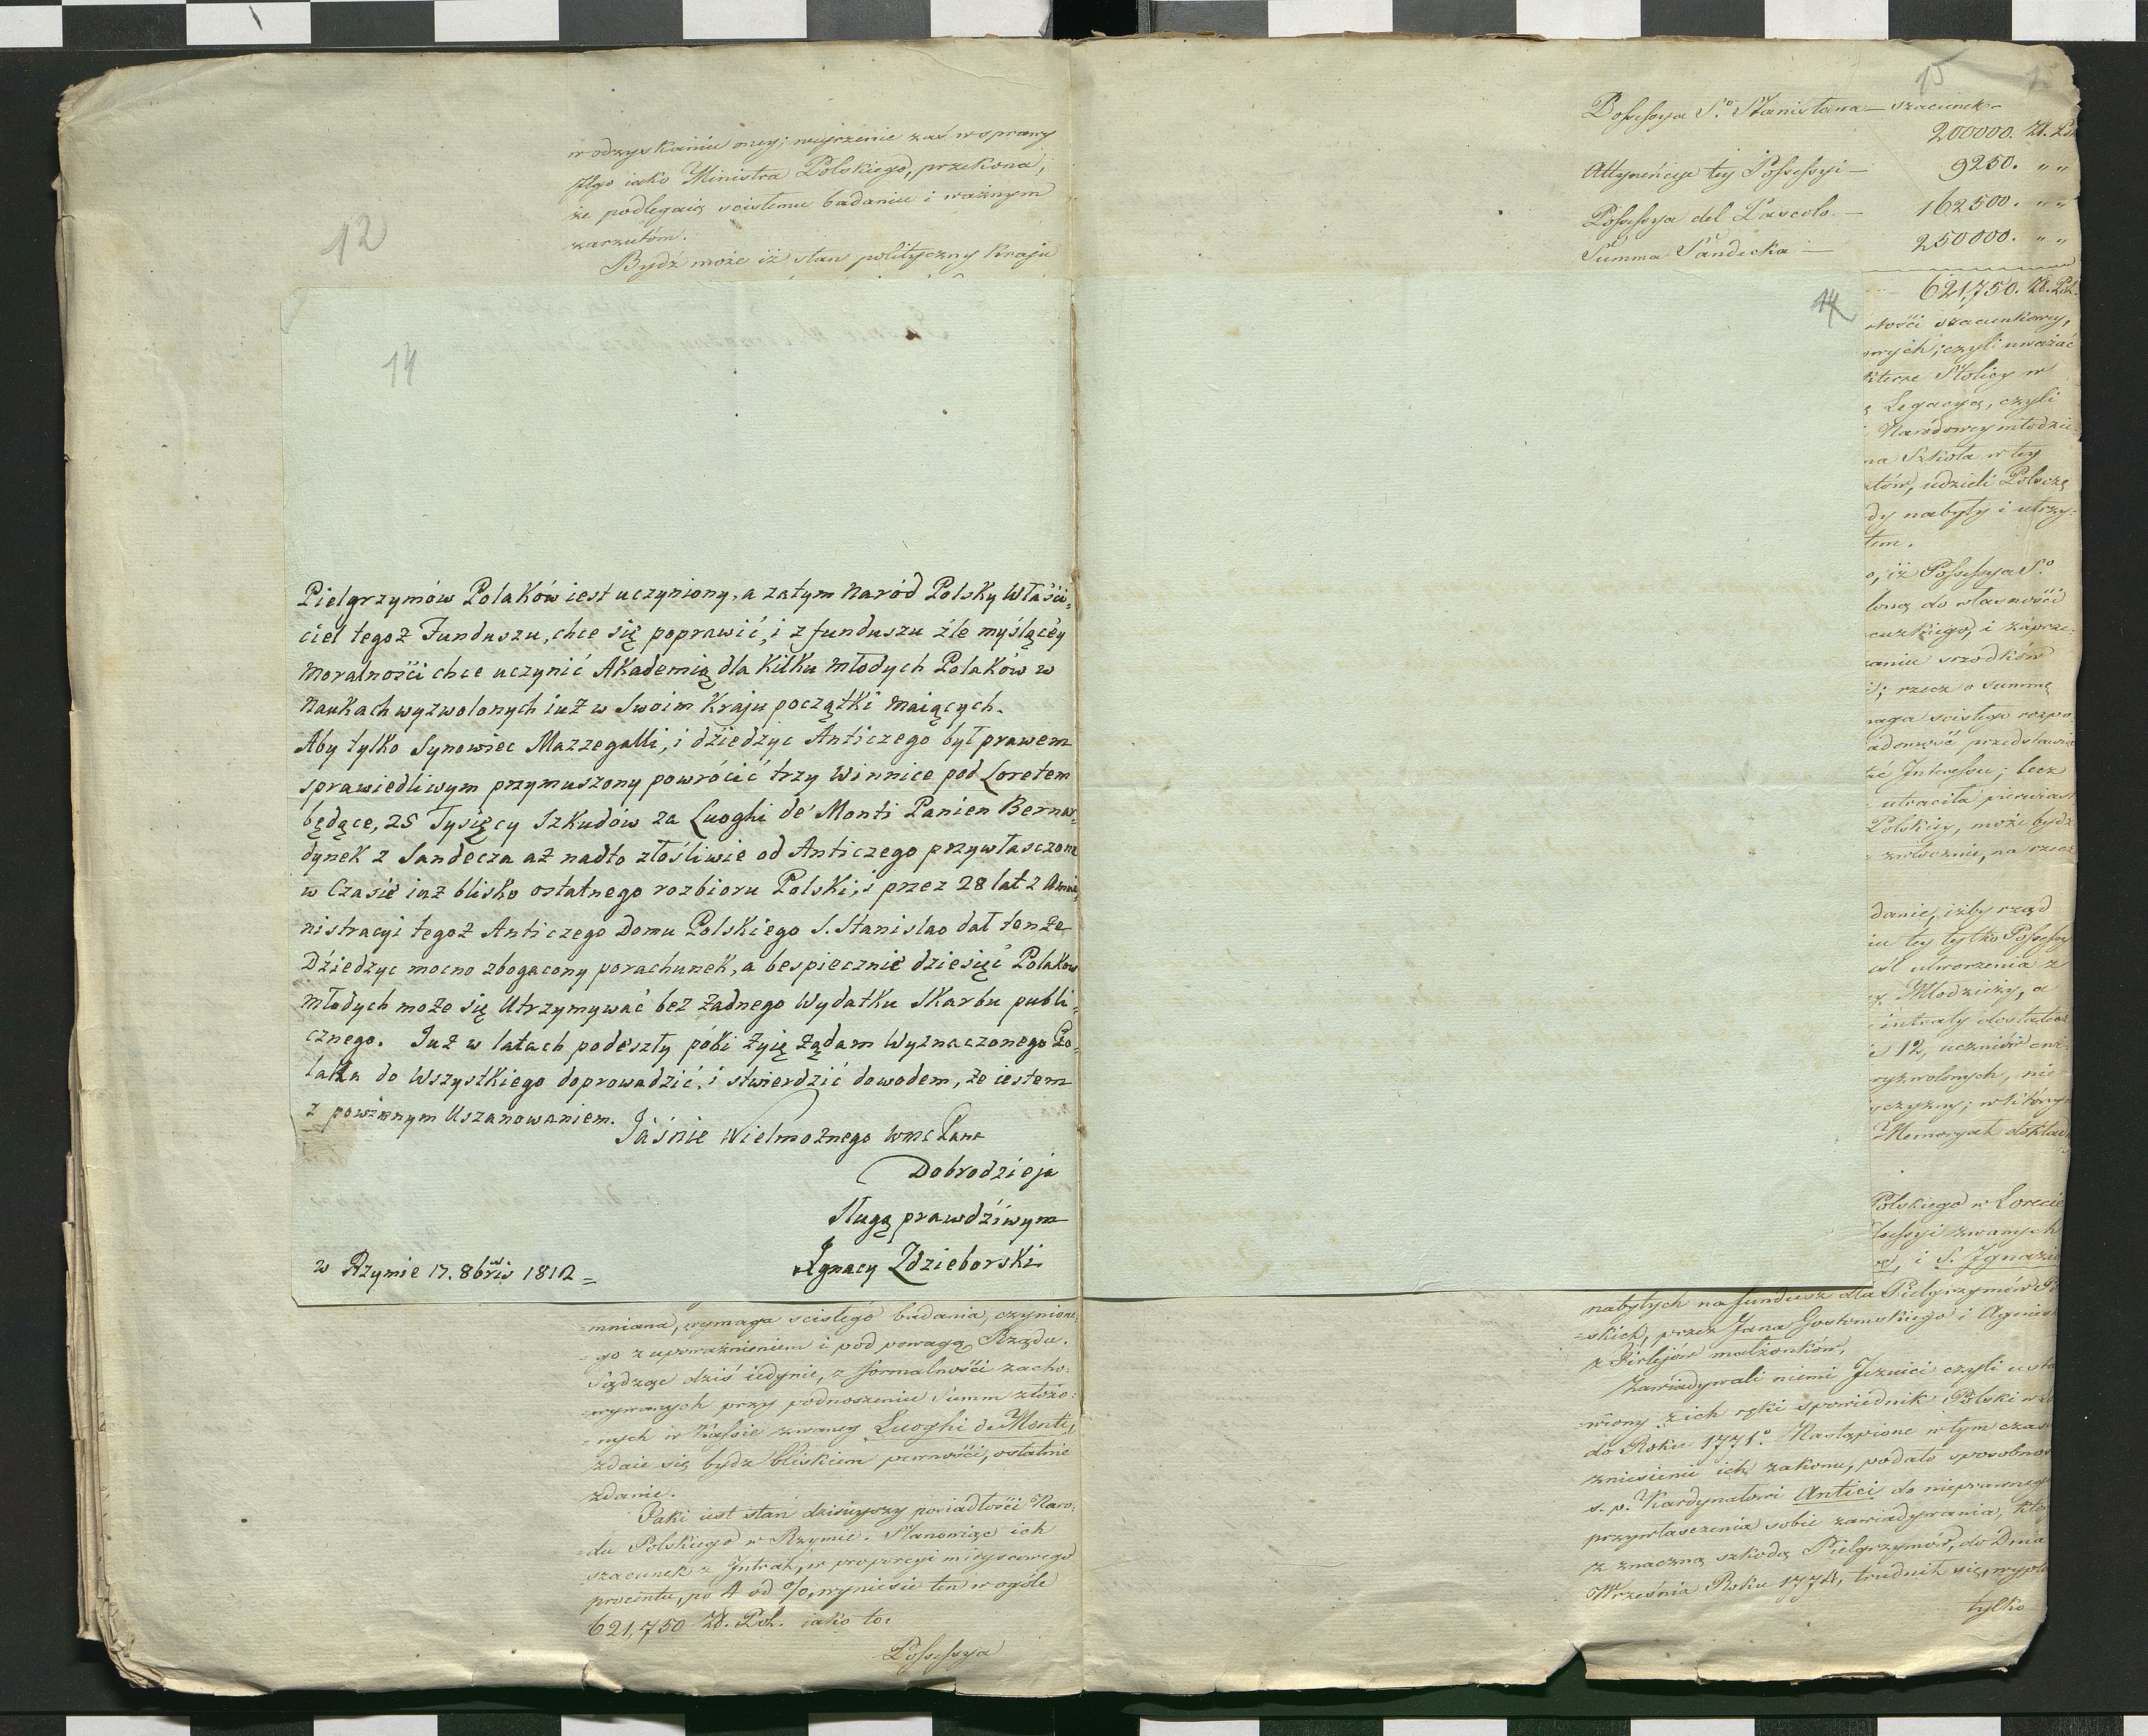 12
w odzyskaniu oney; weyrzenie zaś w sprawy
Jego iako Ministra Polskiego, przekona,
że podlegaią scisłemu badaniu i ważnym
zarzutóm.
Bydź może iż stan polityczny Kraju
14
Pielgrzymów Polaków iest uczyniony, a zatym Naród Polsky Właści=
ciel tegoż Funduszu, chce się poprawić, i z funduszu źle myślącéy
Moralności chce uczynić Akademią dla Kilku Młodych Polaków w
Naukach wyzwolonych iuż w Swoim Kraju początki Maiących.
Aby tylko Synowiec Mazzegalli, i dziedzyc Anticzego był prawem
sprawiedliwym przymuszony powrócić trzy Winnice pod Loretem
będące, 25 Tysięcy Szkudów za Luoghi de Monti Panien Bernar=
dynek z Sandecza aż nadto złośliwie od Anticzego przywłasczone
w Czasie iaż blisko ostatnego rozbioru Polski, i przez 28 lat z Admi=
nistracyi tegoż Anticzego Domu Polskiego S. Stanislao dał tenże
Dziedzyc mocno zbogacony porachunek, a bespiecznie dziesięć Polaków
młodych może się Utrzymywać bez żadnego Wydatku Skarbu publi=
cznego. Już w latach podeszły póki żyię żądam Wyznaczonego Po=
laka do Wszystkiego doprowadzić, i stwierdzić dowodem, że iestem
z powinnym Uszanowaniem.
Jaśnie Wielmożnego WMc Pana
Dobrodzieja
Sługą prawdźiwym
Ignacy Zdzieborski
w Rzymie 17. 8bris 1812 =
=mniana, wymaga scisłego badania, czynione=
=go z upoważnieniem i pod powagą Rządu.
Sądząc dziś iedynie, z formalności zacho=
=wywanych przy podnoszeniu Summ złożo=
=nych w Kassie zwaney Luoghi de Monti,
zdaie się bydź bliskiem pewności, ostatnie
zdanie.
Jaki iest stan dzisieyszy posiadłości Naro=
=du Polskiego w Rzymie. Stanowiąc ich
szacunek z Intrat, w proporcyi mieyscowego
procentu, po 4 od %, wyniesie ten w ogóle
621,750 Zł. Pol. iako to.
Possessya
15
15
Possessya So. Stanisława — szacunek —
200000. Zł. Pol
Attynencye tey Possessyi — 9250. " "
Possessya del Pascolo. — 162500. " "
Summa Sandecka — 250000. " "
621,750. Zł. Pol.
14
szacunkowey,
czyli uważać
Stolicy w
Legacyą, czyli
Narodowey młodzie=
na Szkoła w tey
udzieli Polsczę
dy nabyty i utrzy=
tem.
iż Possessya So.
do własności
i zaprze=
srzodków
rzecz o summę
scisłego rozpo=
przedstawie
Interessu; lecz
utraciła pierwias
Polskiey, może bydź
na rzecz
danie, iżby rząd
tey tylko Possessy
utworzenia z
Młodzieży, a
intraty dostatecz
12, uczniów
wyzwolonych, nie
Memoryał
Polskiego w Lorecie
zwanych
i S. Ignazio
nabytych na fundusz dla Pielgrzymów Po
=skich, przez Jana Gostomskiego i Agniesz
z Firlejów małżonków.
Zawiadywali niemi Jezuici czyli usta
=wiony z ich ręki spowiednik Polski
do Roku 1771o. Nastąpione w tym czas
zniesienie ich zakonu, podało sposobnoś
s. p. Kardynałowi Antici do nieprawnego
przywłasczenia sobie zawiadywania,
z znaczną szkodą Pielgrzymów, do Dnia
Września Roku 1774, trudnił się,
tylko